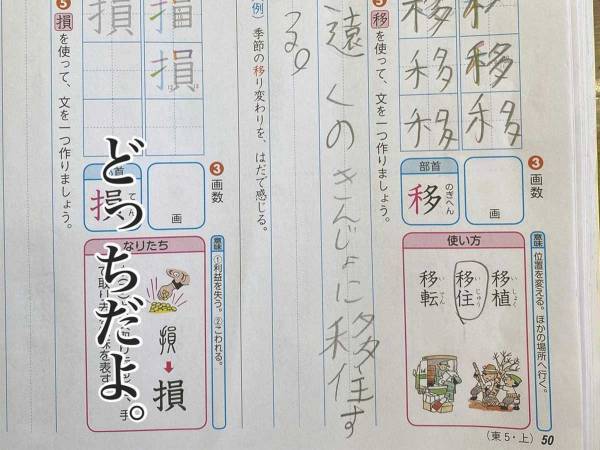 移
移
移
移
移
移
③画数
画
部首
移
のぎへん
使い方
移植
いしょく
移住
いじゅう
移転
いてん
意味
位置を変える。ほかの場所へ行く。
(東5・上) 50
⑤移を使って、文を一つ作りましょう。
遠くのきんじょに移住す
る。
例)季節の移り変わりを、はだで感じる。
損
損
損
③画数
画
部首
損
てへん
意味
①利益を失う。②こわれる。
なりたち
損
損
⑤損を使って、文を一つ作りましょう。
どっちだよ。